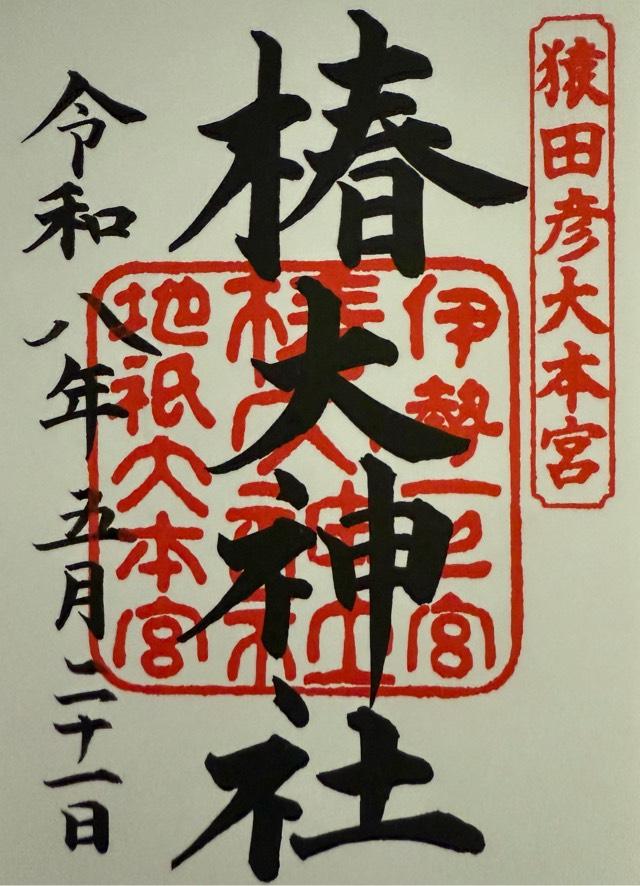 猿田彦大本宮
椿大神社
伊勢一之宮
椿大神社
地祇大本宮
令和八年五月二十一日